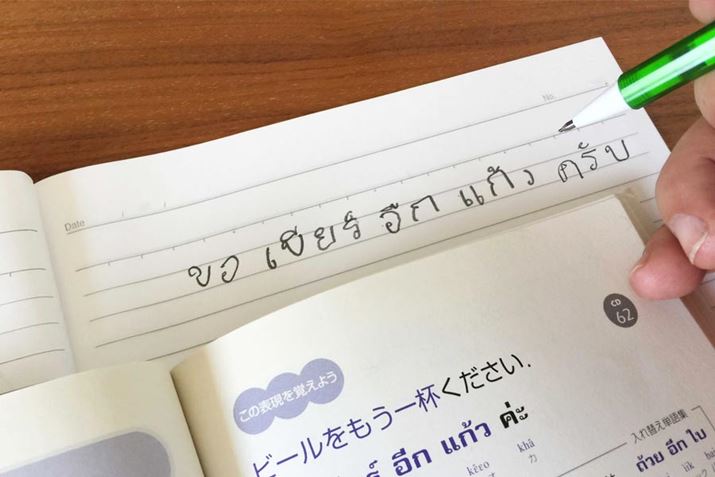 No.
Date
ขอ เบียร์ อีก แก้ว ครับ
CD 62
この表現を覚えよう
ビールをもう一杯ください.
อีก แก้ว ค่ะ
kɛ̂ɛo khâ
カ
入れ替え単語集
ถ้วย อีก ใบ